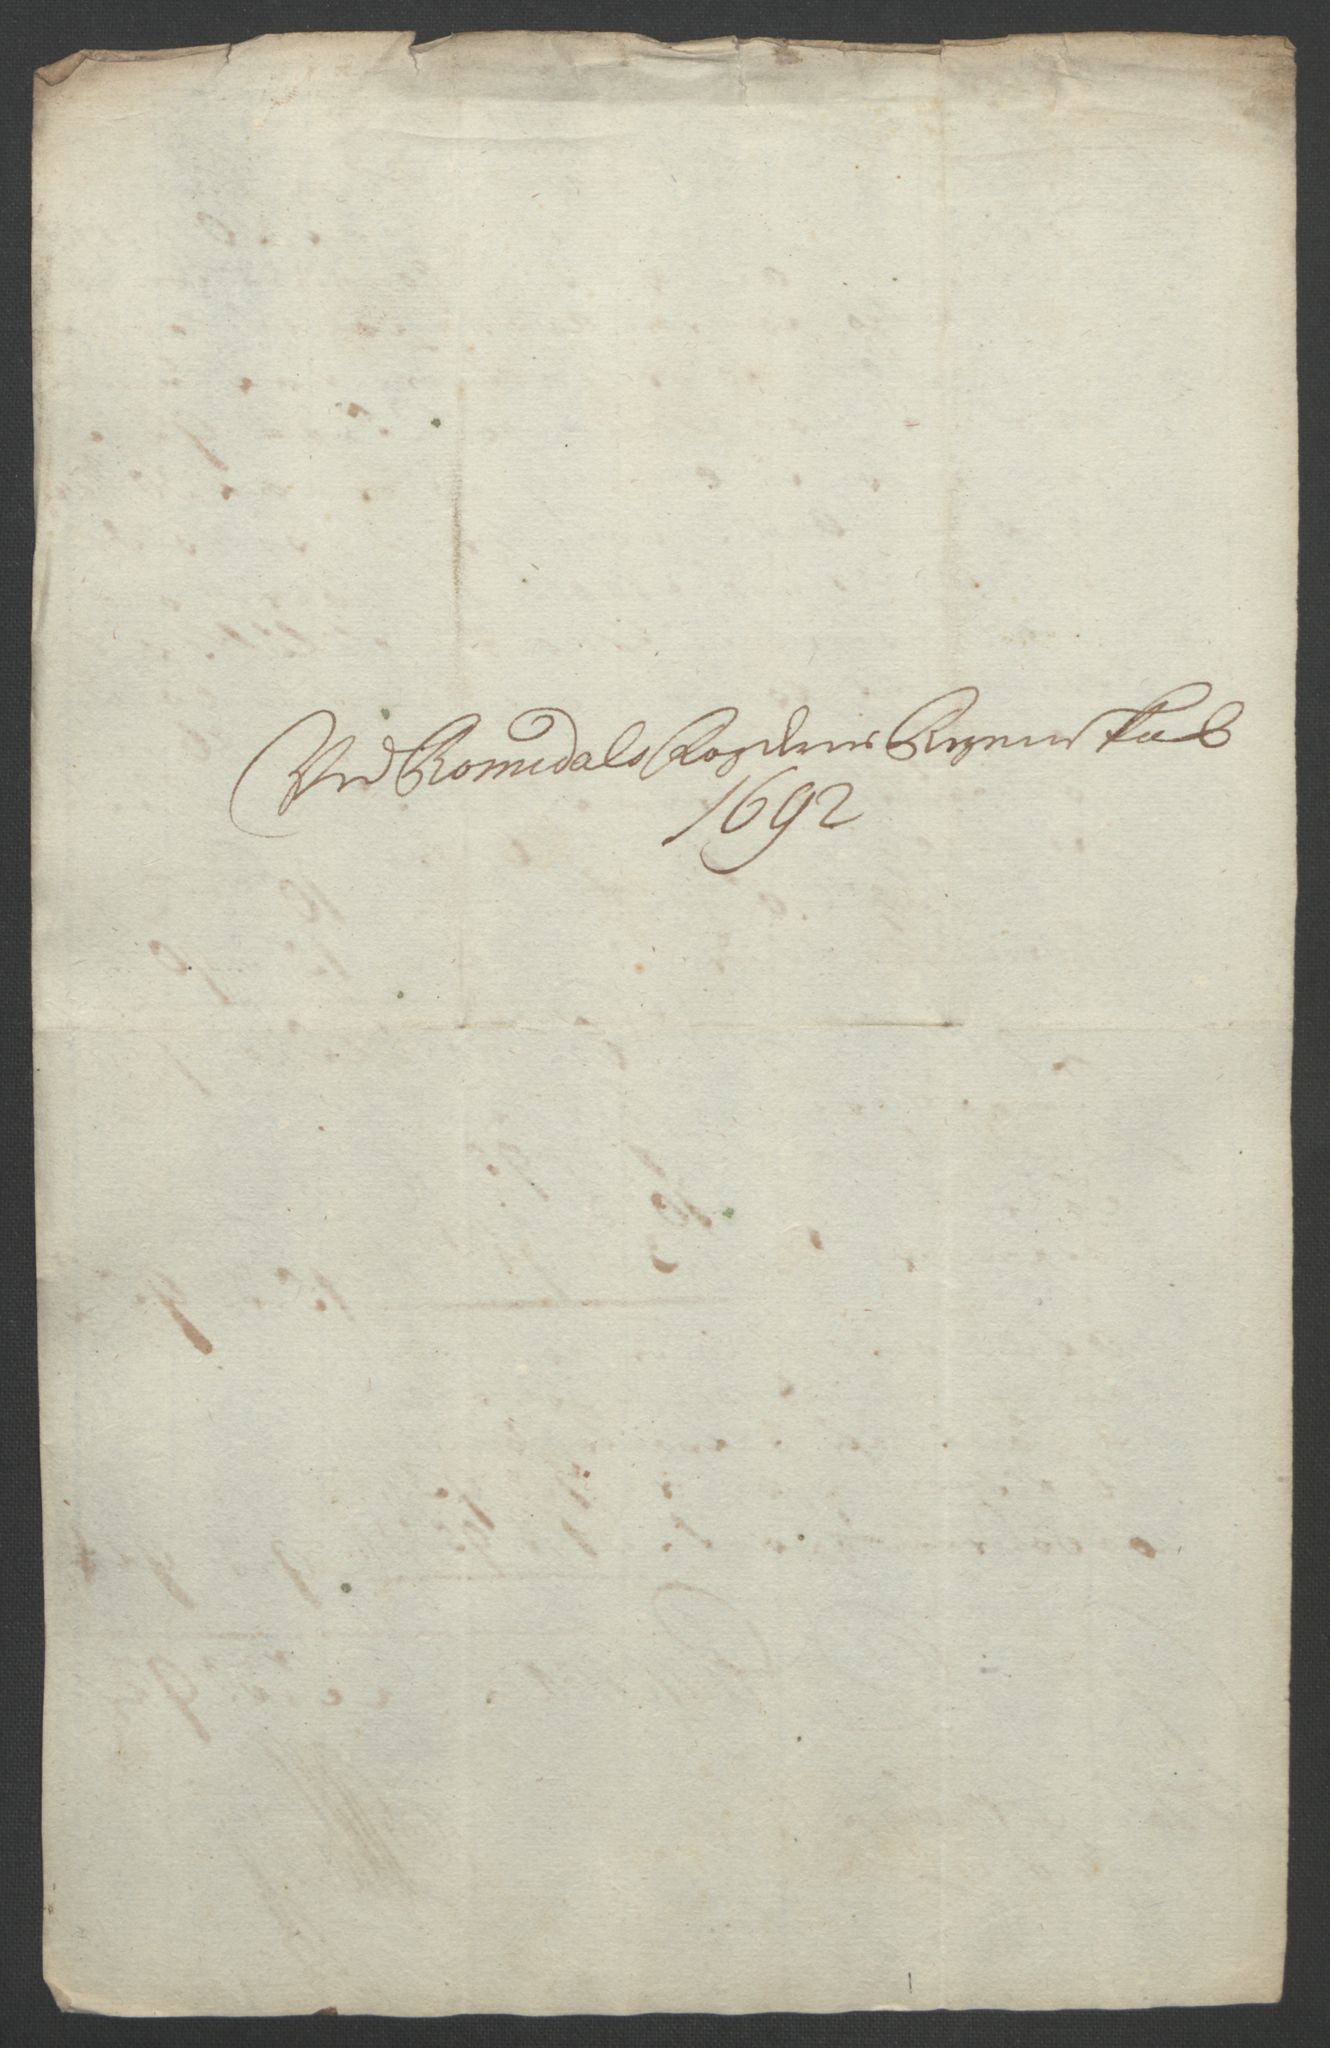 Ved Romsdals Fogderis Regenskab
1692